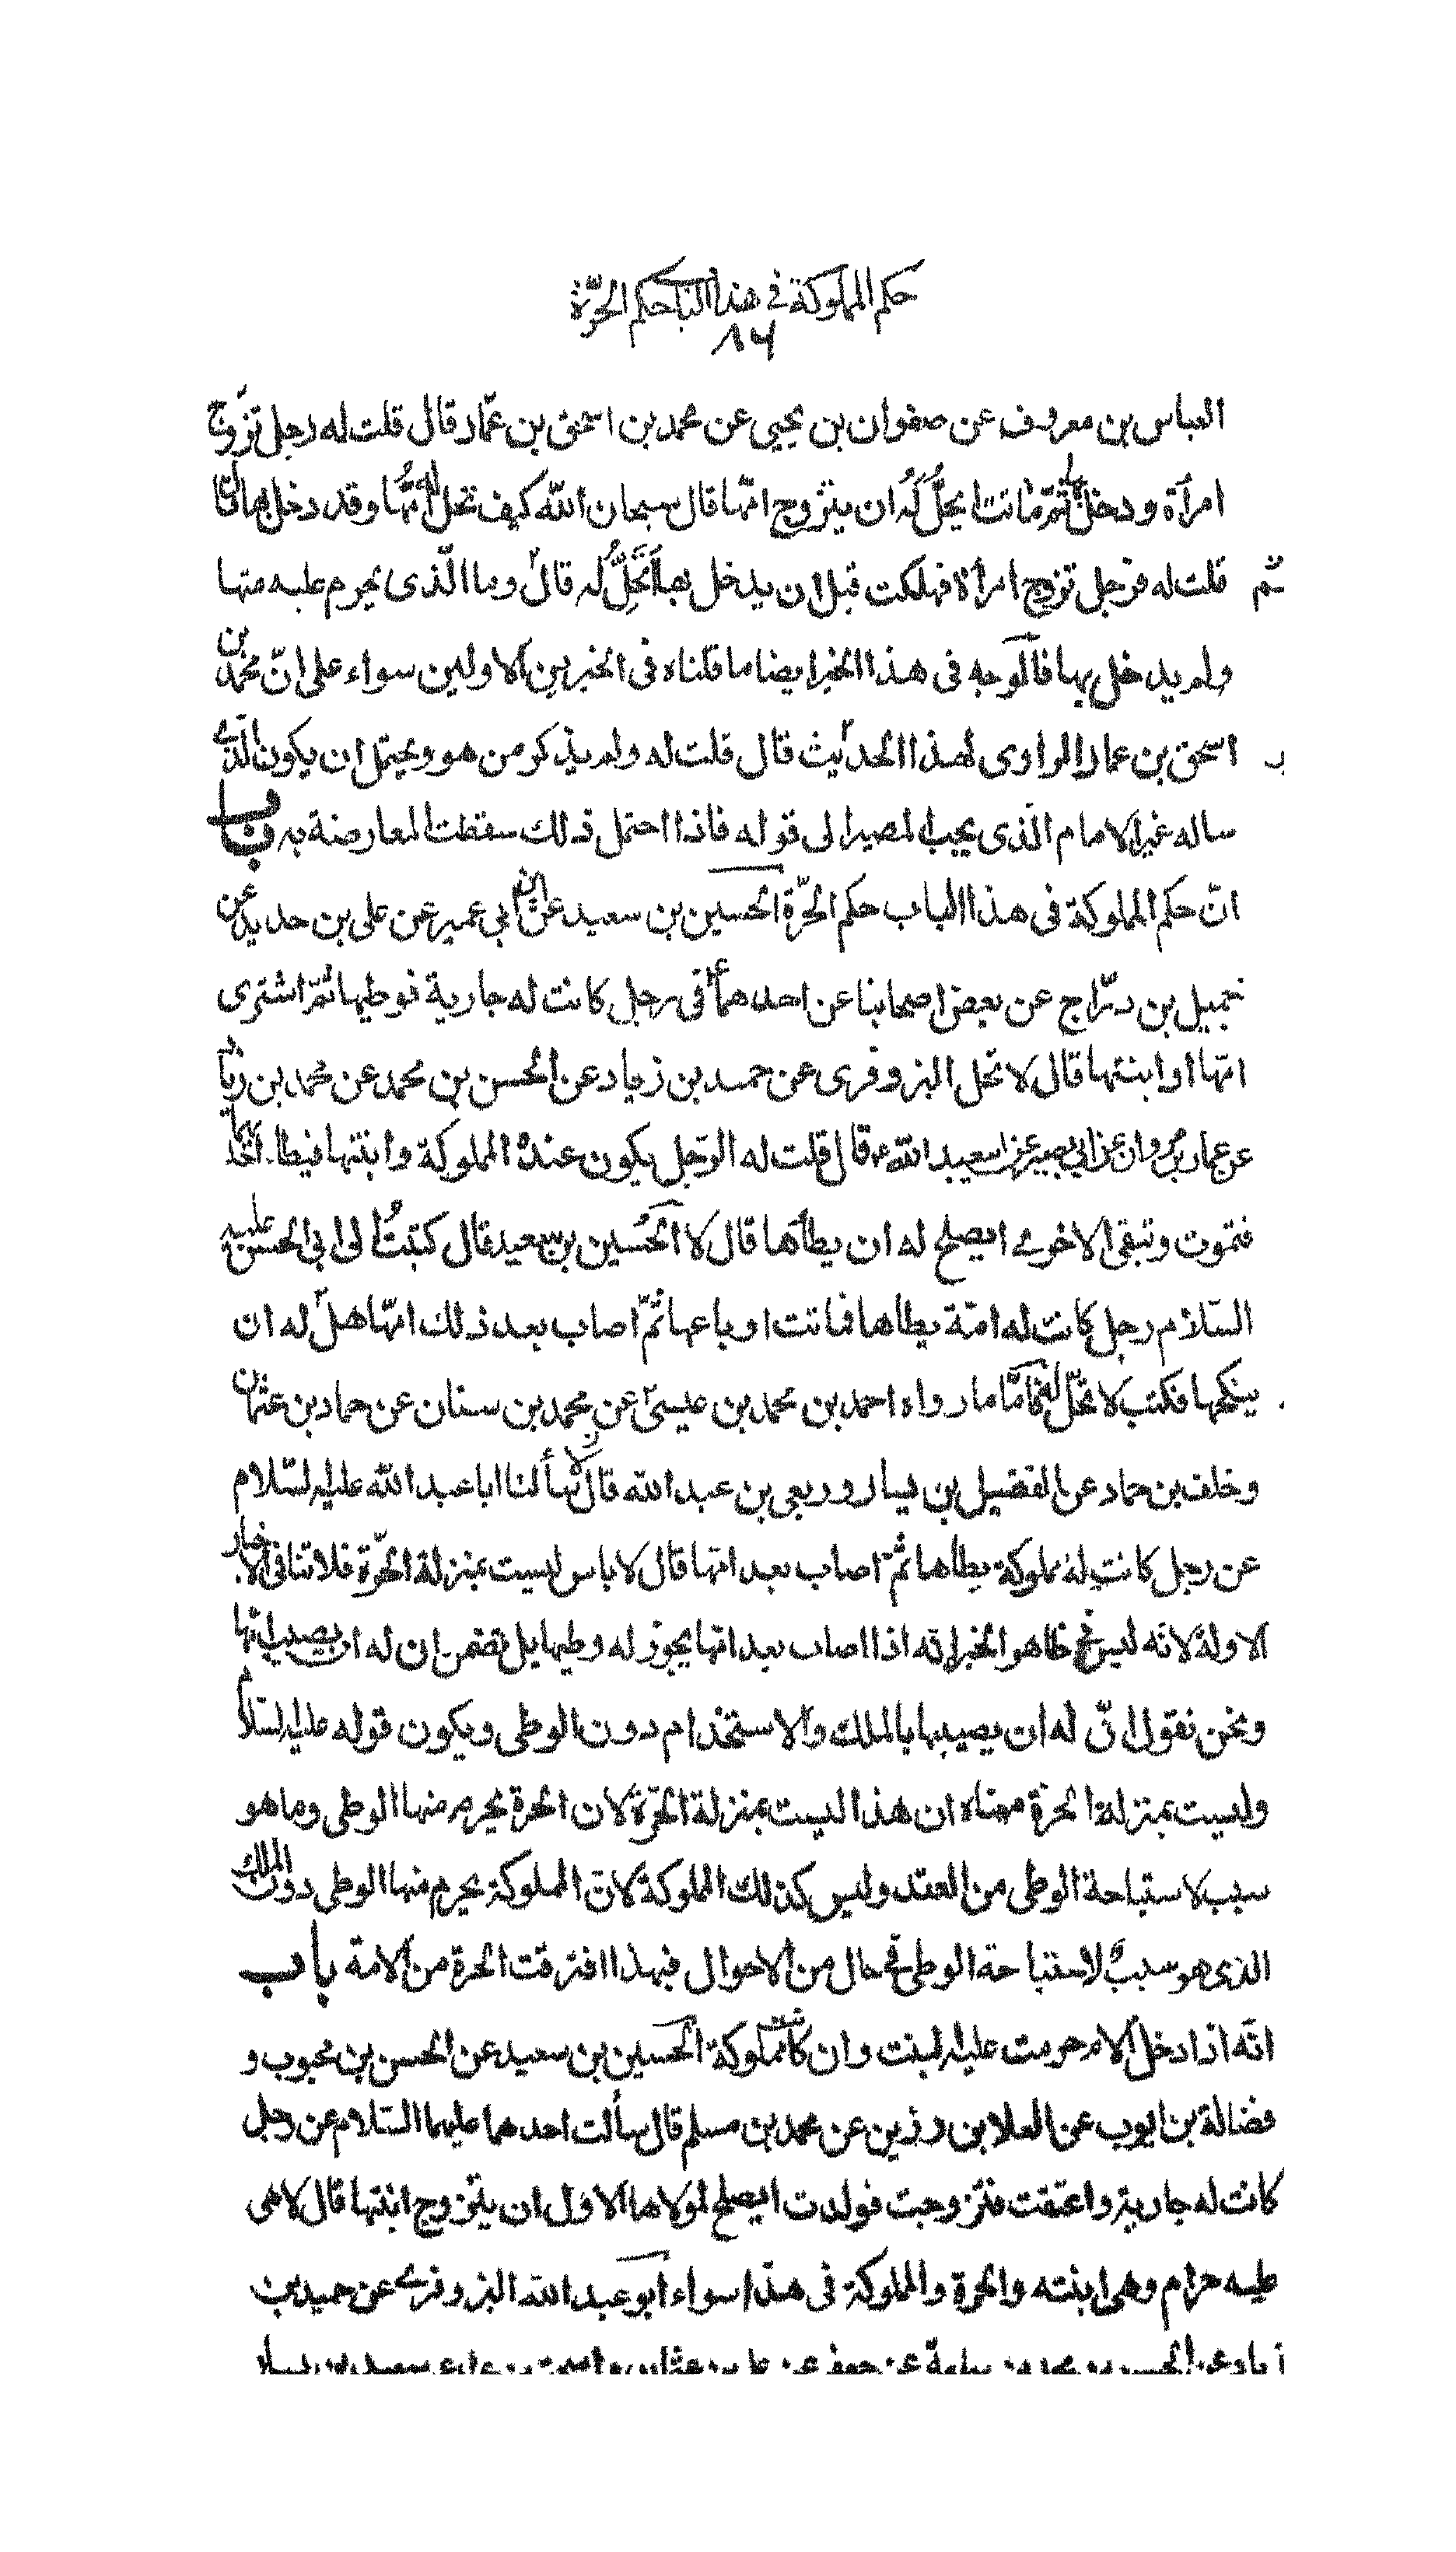 حكم المملوكة في هذا الباب حكم الحرّة
٨٦
العباس بن معروف عن صفوان بن يحيى عن محمد بن اسحق بن عمّار قال قلت له رجل تزوّج
امرأة ودخل بها ثمّ ماتت ايحلّ له ان يتزوج امّها قال سبحان الله كيف تحل له امّها وقد دخل بها قال
قلت له فرجل تزوج امرأة فهلكت قبل ان يدخل بها تحلّ له امها قال وما الّذى يحرم عليه منها
ولم يدخل بها فالوجه فى هذا الخبر ايضا ما قلناه فى الخبرين الاولين سواء على انّ محمد بن
اسحق بن عمار الراوى لهذا الحديث قال قلت له ولم يذكر من هو ويحتمل ان يكون الذي
ساله غير الامام الّذى يجب المصير الى قوله فاذا احتمل ذلك سقطت المعارضة به باب
انّ حكم المملوكة فى هذا الباب حكم الحرّة الحسين بن سعيد عن ابن ابي عمير عن على بن حديد عن
جميل بن درّاج عن بعض اصحابنا عن احدهما ع فى رجل كانت له جارية فوطيها ثمّ اشترى
امّها او ابنتها قال لا تحل البزوفرى عن حميد بن زياد عن الحسن بن محمد عن محمد بن زياد
عن عمار بن مروان عن ابي بصير عن ابيعبد الله ع قال قلت له الرّجل يكون عنده المملوكة وابنتها فيطا احدٰهما
فتموت وتبقى الاخرى ايصلح له ان يطأها قال لا الحسين بن سعيد قال كتبتُ الى ابي الحسن عليه
السّلام رجل كانت له امة يطاها فماتت او باعها ثمّ اصاب بعد ذلك امّها هل له ان
ينكحها فكتب لا تحلّ له فامّا ما رواه احمد بن محمد بن عيسى عن محمد بن سنان عن حماد بن عثمان
وخلف بن حماد عن الفضيل بن يسار وربعى بن عبد الله قال سألنا ابا عبد الله عليه السّلام
عن رجل كانت له مملوكة يطاها ثمّ اصاب بعد امّها قال لا باس ليست بمنزلة الحرّة فلا تنافى الاخبار
الاولة لانّه ليس في ظاهر الخبر انه اذا اصاب بعد امّها يجوز له وطيها بل تضمن ان له ان يصيب امّها
ونحن نقول انّ له ان يصيبها بالملك والاستخدام دون الوطى ويكون قوله عليه السّلام
وليست بمنزلة الحرة معناه ان هذا ليست بمنزلة الحرّة لان الحرة يحرم منها الوطى وما هو
سبب لاستباحة الوطى من العقد وليس كذلك المملوكة لانّ المملوكة يحرم منها الوطى دون الملك
الذى هو سبب لاستباحة الوطى في حال من الاحوال فبهذا افترقت الحرة من الامة باب
انّه اذا دخل بالام حرمت عليه البنت وان كانت مملوكة الحسين بن سعيد عن الحسن بن محبوب و
فضالة بن ايوب عن العلا بن رزين عن محمد بن مسلم قال سألت احدهما عليهما السّلام عن رجل
كانت له جارية واعتقت فتزوجت فولدت ايصلح لمولاها الاول ان يتزوج ابنتها قال لا هى
عليه حرام وهى ابنته والحرة والمملوكة فى هذا سواء ابو عبد الله البزوفرى عن حميد بن